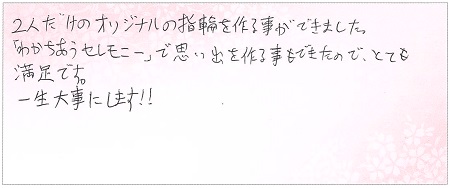 2人だけのオリジナルの指輪を作る事ができました。
「わかちあうセレモニー」で思い出を作る事もできたので、とても
満足です。
一生大事にします!!